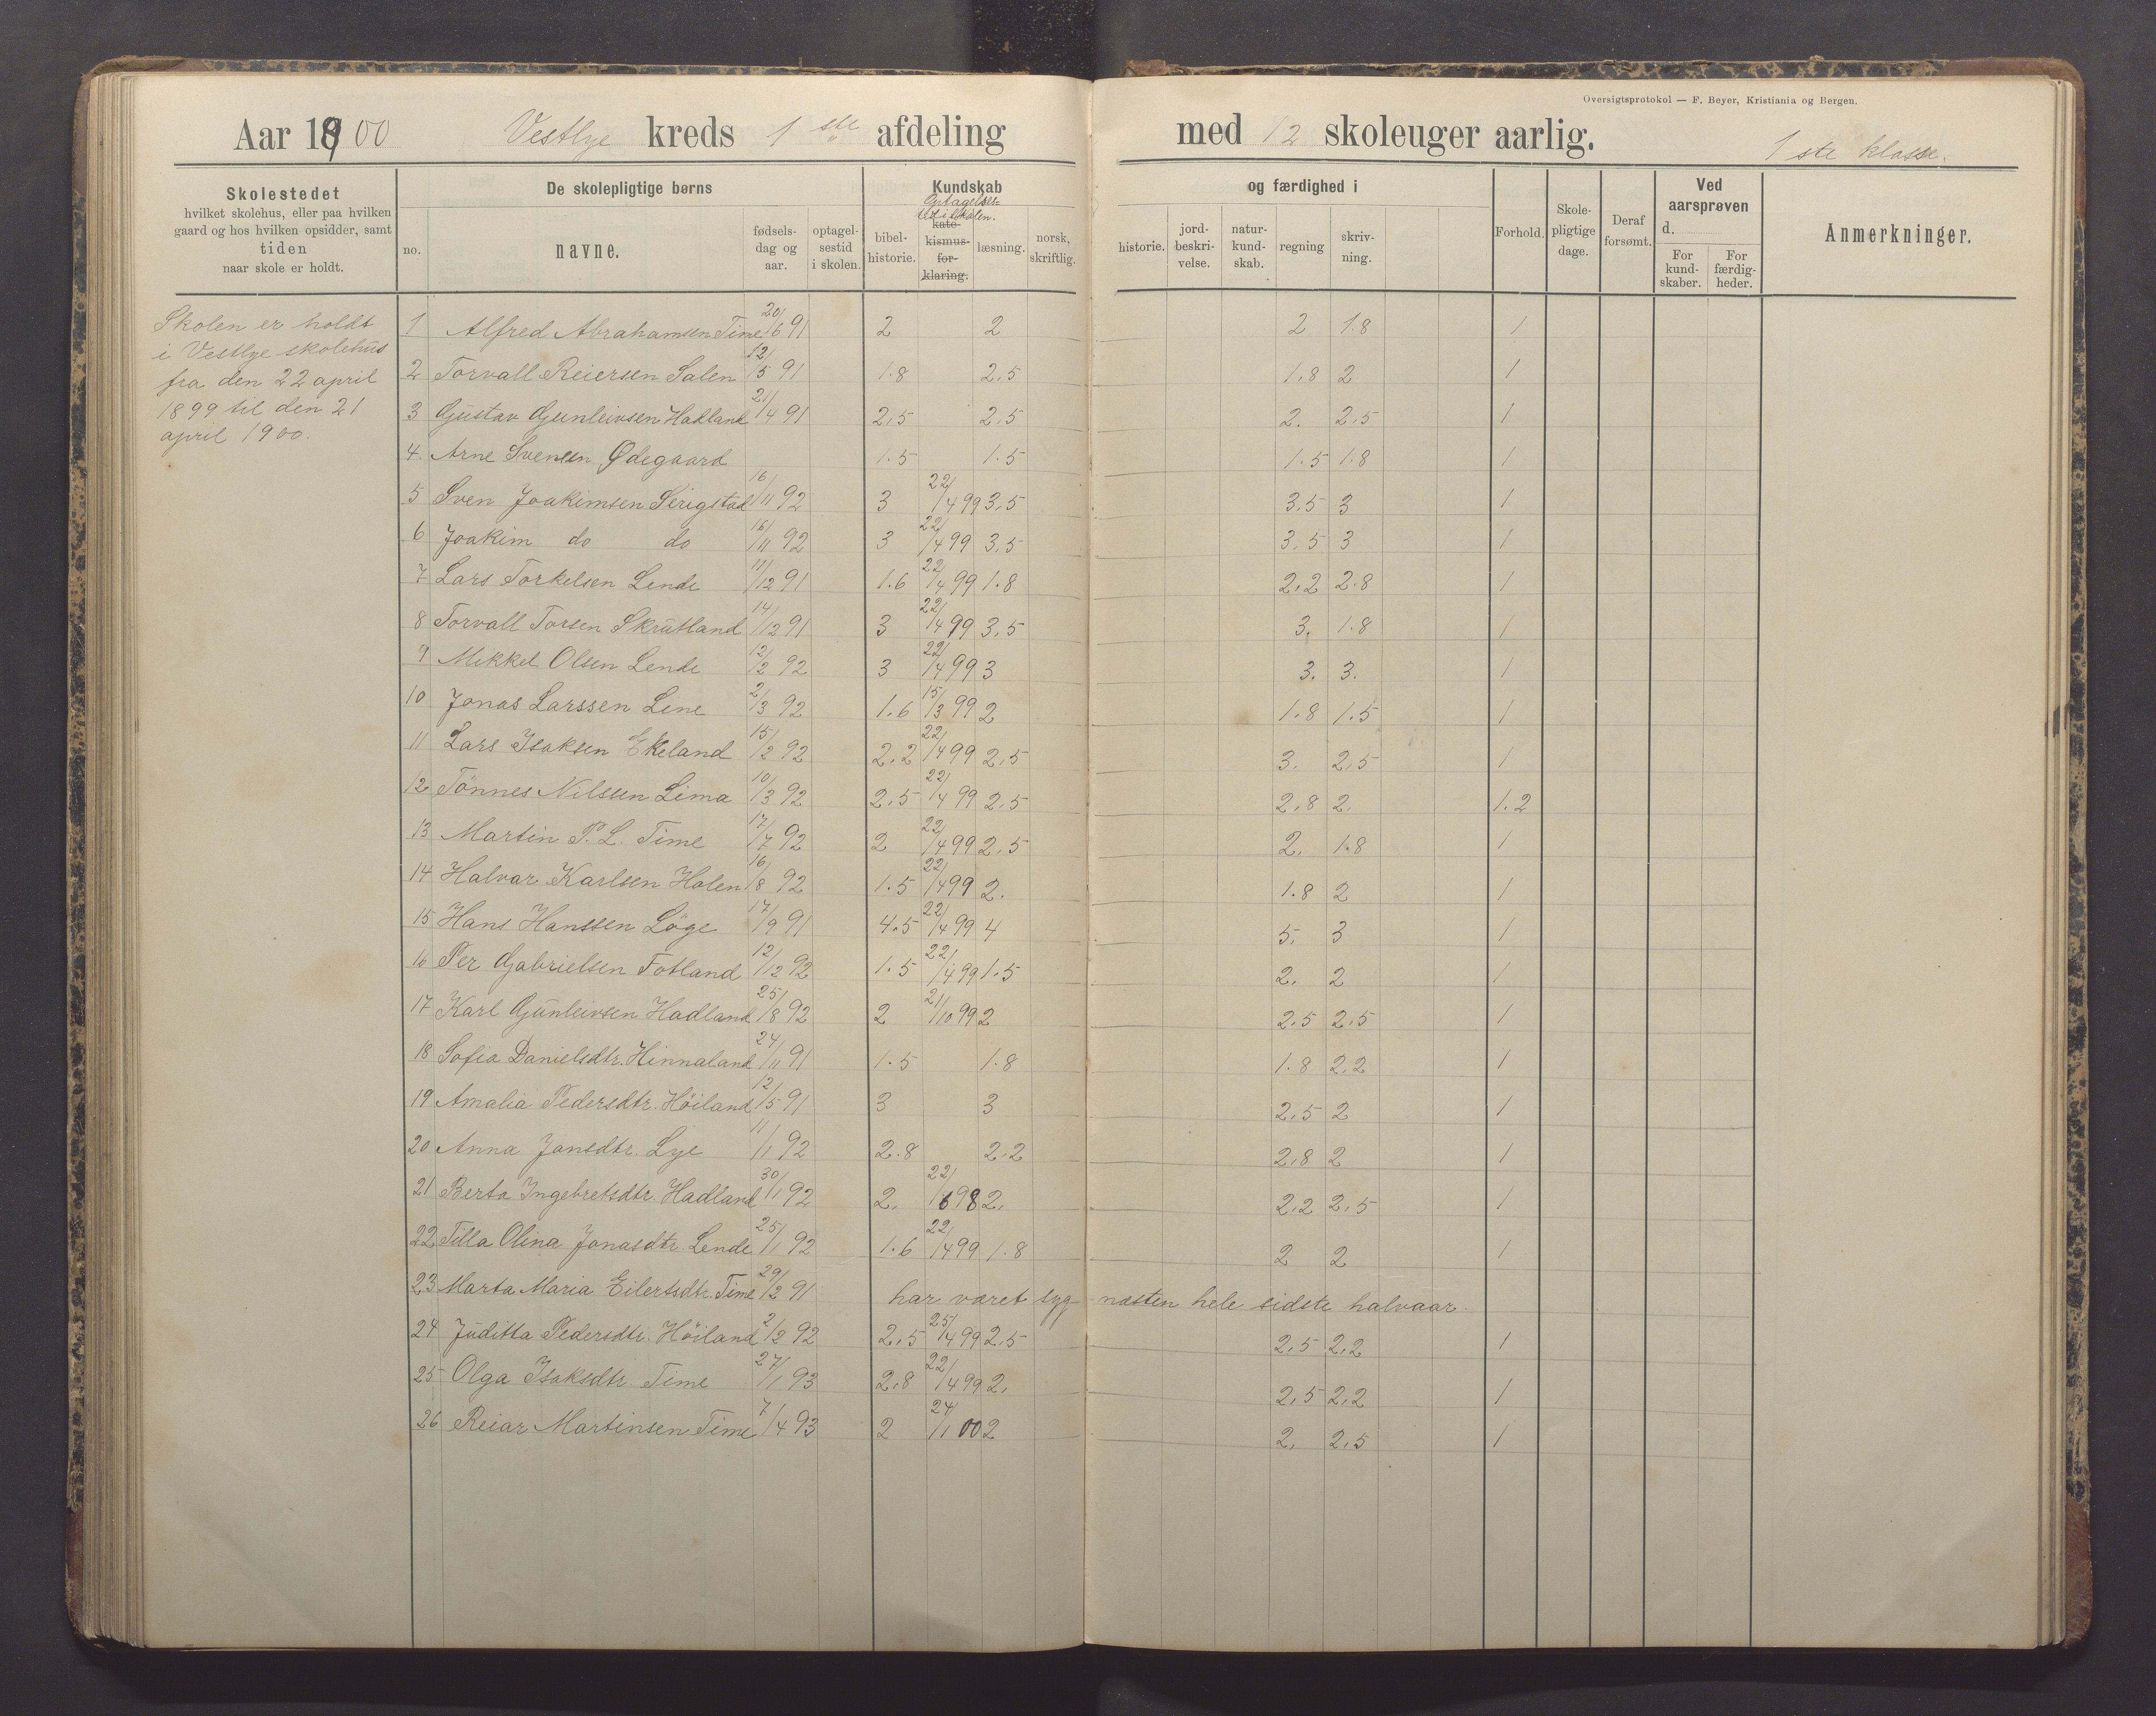 Oversigtsprotokol — F. Beyer, Kristiania og Bergen.
Aar 1900 Vestlye kreds 1 ste afdeling med 12 skoleuger aarlig. 1 ste klasse.
Skolestedet
hvilket skolehus, eller paa hvilken
gaard og hos hvilken opsidder, samt
tiden
naar skole er holdt.
De skolepligtige børns
no.
navne.
fødsels-
dag og
aar.
optagel-
sestid
i skolen.
Kundskab
Optagelses-
tid i skolen.
bibel-
historie.
kate-
kismus-
for-
klaring.
læsning.
norsk,
skriftlig.
og færdighed i
historie.
jord-
beskri-
velse.
natur-
kund-
skab.
regning
skriv-
ning.
Forhold.
Skole-
pligtige
dage.
Deraf
forsømt.
Ved
aarsprøven
d.
For
kund-
skaber.
For
færdig-
heder.
Anmerkninger.
Skolen er holdt
i Vestlye skolehus
fra den 22 april
1899 til den 21
april 1900.
1 Alfred Abrahamsen Time 20/6 91 2 2 2 1.8 1
2 Torvall Reiersen Salen 12/5 91 1.8 2,5 1,8 2 1
3 Gustav Gunleivsen Hadland 21/4 91 2,5 2,5 2. 2,5 1
4. Arne Svensen Ødegaard 1.5 1.5 1.5 1.8 1
5 Sven Joakimsen Serigstad 16/11 92 3 22/4 99 3,5 3.5 3 1
6 Joakim do do 16/11 92 3 22/4 99 3,5 3,5 3 1
7 Lars Torkelsen Lende 11/12 91 1.6 22/4 99 1.8 2,2 2.8 1
8 Torvall Torsen Skrutland 14/12 91 3 22/4 99 3,5 3. 1.8 1
9 Mikkel Olsen Lende 12/2 92 3 22/4 99 3 3. 3. 1
10 Jonas Larssen Lene 2/3 92 1.6 15/3 99 2 1.8 1.5 1
11 Lars Isaksen Ekeland 15/2 92 2,2 22/4 99 2,5 3. 2,5 1
12 Tönnes Nilssen Lima 10/3 92 2,5 22/4 99 2,5 2,8 2. 1.2
13 Martin P. L. Time 17/7 92 2 22/4 99 2,5 2. 1.8 1
14 Halvar Karlsen Holen 16/8 92 1.5 22/4 99 2. 1.8 2 1
15 Hans Hanssen Löge 17/9 91 4.5 22/4 99 4 5. 3 1
16 Per Gabrielsen Fotland 12/12 92 1.5 22/4 99 1.5 2. 2 1
17 Karl Gunleivsen Hadland 25/8 92 2 21/10 99 2 2.5 2.5 1
18 Sofia Danielsdtr. Hinnaland 24/11 91 1.5 1.8 1.8 2,2 1
19 Amalia Pedersdtr. Höiland 12/5 91 3 3 2,5 2 1
20 Anna Jonsdtr. Lye 11/1 92 2.8 2.2 2,8 2 1
21 Berta Ingebretsdtr. Hadland 30/1 92 2. 22/6 98 2. 2,2 2,5 1
22 Tilla Olina Jonasdtr. Lende 25/1 92 1.6 22/4 99 1.8 2 2 1
23 Marta Maria Eilertsdtr. Time 29/2 91 har været syg næsten hele sidste halvaar.
24 Juditta Pedersdtr. Höiland 2/2 92 2,5 25/4 99 2.5 2,5 2,2 1
25 Olga Isaksdtr. Time 27/1 93 2,8 22/4 99 2. 2,5 2,2 1
26 Reiar Martinsen Time 7/4 93 2 24/1 00 2 2. 2,5 1